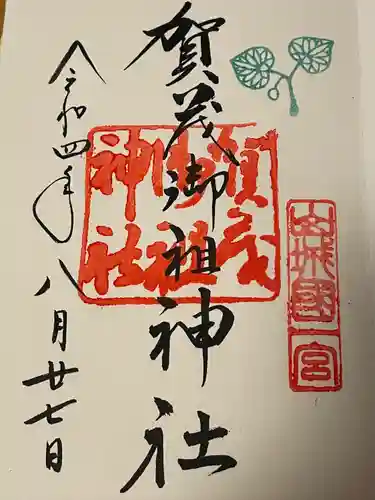 山城國一宮
賀茂御祖神社
賀茂御祖神社
令和四年
八月廿七日